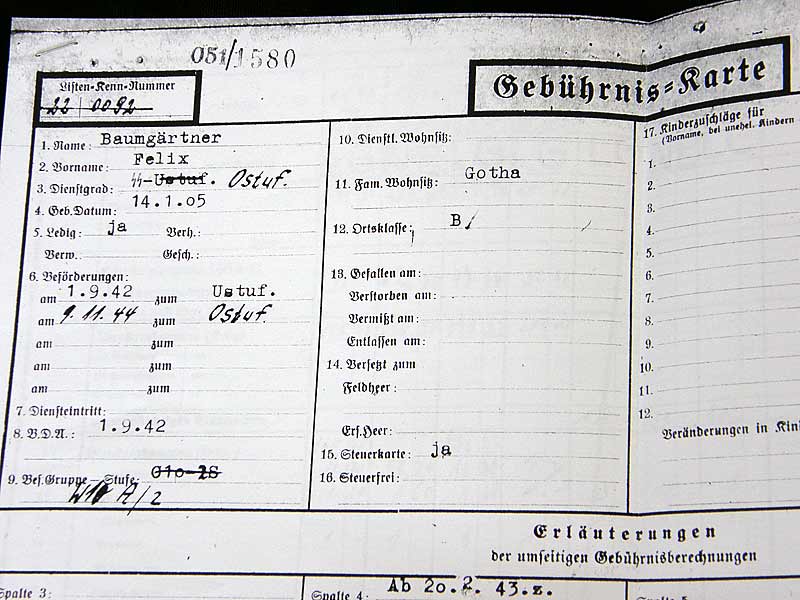 051/1580
Listen-Kenn-Nummer
22 0092
Gebührnis-Karte
1. Name: Baumgärtner
2. Vorname: Felix
3. Dienstgrad: ᛋᛋ-Ustuf. Ostuf.
4. Geb.Datum: 14.1.05
5. Ledig: ja Verh.:
Verw.: Gesch.:
6. Beförderungen:
am 1.9.42 zum Ustuf.
am 9.11.44 zum Ostuf.
am zum
am zum
am zum
7. Diensteintritt:
8. B.D.A.: 1.9.42
9. Bes.Gruppe - Stufe:
10. Dienstl. Wohnsitz:
11. Fam. Wohnsitz: Gotha
12. Ortsklasse: B
13. Gefallen am:
Verstorben am:
Vermißt am:
Entlassen am:
14. Versetzt zum
Feldheer:
Ers.Heer:
15. Steuerkarte: ja
16. Steuerfrei:
17. Kinderzuschläge für
(Vorname, bei unehel. Kindern
1.
2.
3.
4.
5.
6.
7.
8.
9.
10.
11.
12.
Veränderungen in
Erläuterungen
der umseitigen Gebührnisberechnungen
Spalte 3:
Spalte 4: Ab 20.2. 43.z.